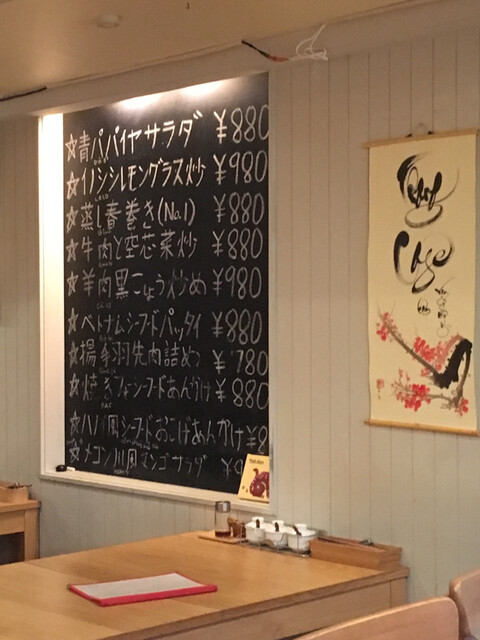 ☆青パパイヤサラダ ¥880
☆イノシシレモングラス炒 ¥980
☆蒸し春巻き(No.1) ¥880
☆牛肉と空芯菜炒 ¥880
☆羊肉黒こしょう炒め ¥980
☆ベトナムシーフードパッタイ ¥880
☆揚手羽先肉詰め ¥780
☆焼きフォーシーフードあんかけ ¥880
☆ハノイ風シーフードおこげあんかけ ¥8
☆メコン川風マンゴサラダ